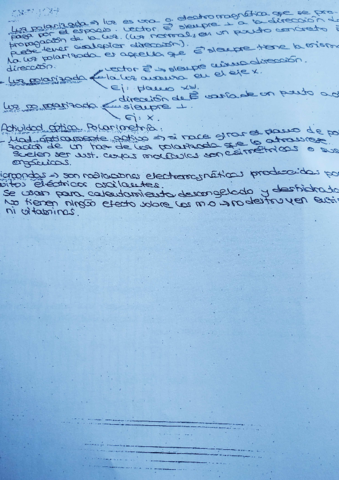 Luz polarizada → luz es una o. electromagnética que se pro-
paga por el espacio. Vector E⃗ siempre ⊥ a la dirección de
propagación de la luz. (luz normal, en un punto concreto
puede tener cualquier dirección).
La luz polarizada es aquella que E⃗ siempre tiene la misma
dirección.
vector E⃗ → siempre misma dirección.
Luz polarizada la luz avanza en el eje x.
Ej: plano xy.
dirección de E⃗ varía de un punto a
Luz no polarizada siempre ⊥.
ej: x.
Actividad óptica. Polarimetría:
Mat. ópticamente activo → si hace girar el plano de
zación de un haz de luz polarizada que lo atraviese
Suelen ser sust. cuyas moléculas son asimétricas
→ son radiaciones electromagnéticas producidas por
eléctricos oscilantes.
Se usan para calentamiento descongelado y
No tienen ningún efecto sobre los m.o → no destruyen
ni vitaminas.